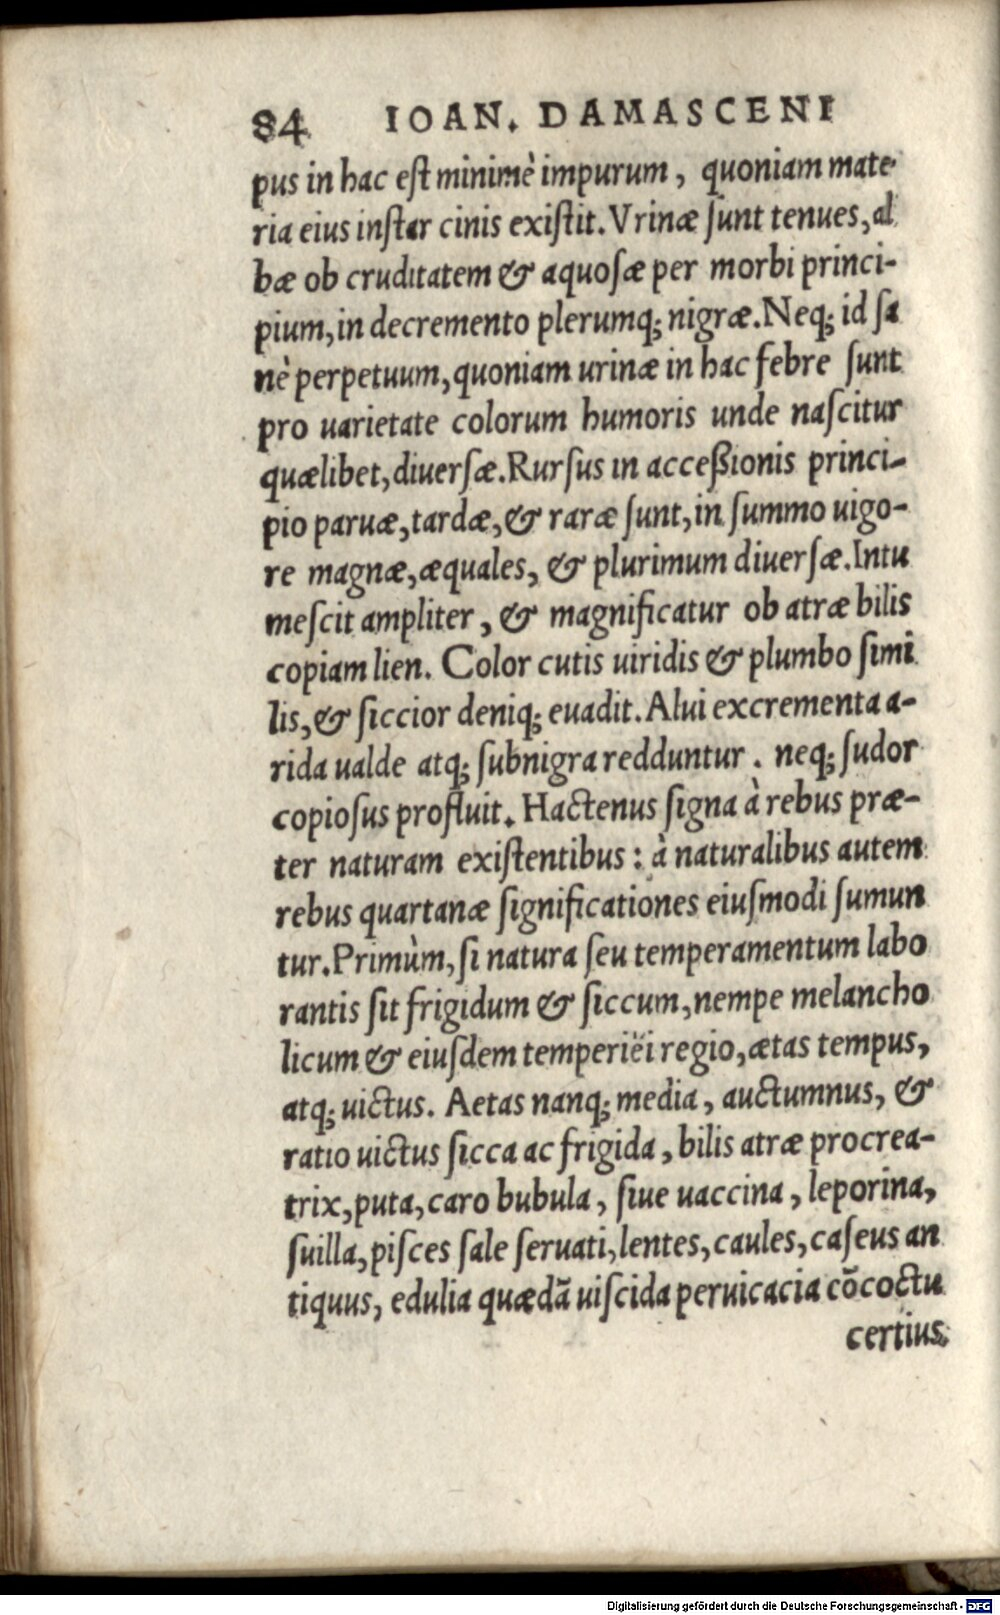 84 IOAN. DAMASCENI
pus in hac est minimè impurum, quoniam mate-
ria eius instar cinis existit. Vrinæ sunt tenues, al
bæ ob cruditatem & aquosæ per morbi princi-
pium, in decremento plerumq; nigræ. Neq; id sa
nè perpetuum, quoniam urinæ in hac febre sunt
pro uarietate colorum humoris unde nascitur
quælibet, diuersæ. Rursus in acceßionis princi-
pio paruæ, tardæ, & raræ sunt, in summo uigo-
re magnæ, æquales, & plurimum diuersæ. Intu
mescit ampliter, & magnificatur ob atræ bilis
copiam lien. Color cutis uiridis & plumbo simi
lis, & siccior deniq; euadit. Alui excrementa a-
rida ualde atq; subnigra redduntur. neq; sudor
copiosus profluit. Hactenus signa à rebus præ-
ter naturam existentibus: à naturalibus autem
rebus quartanæ significationes eiusmodi sumun
tur. Primùm, si natura seu temperamentum labo
rantis sit frigidum & siccum, nempe melancho
licum & eiusdem temperiëi regio, ætas tempus,
atq; uictus. Aetas nanq; media, auctumnus, &
ratio uictus sicca ac frigida, bilis atræ procrea-
trix, puta, caro bubula, siue uaccina, leporina,
suilla, pisces sale seruati, lentes, caules, caseus an
tiquus, edulia quædã uiscida peruicacia cõcoctu
certius.
Digitalisierung gefördert durch die Deutsche Forschungsgemeinschaft - DFG